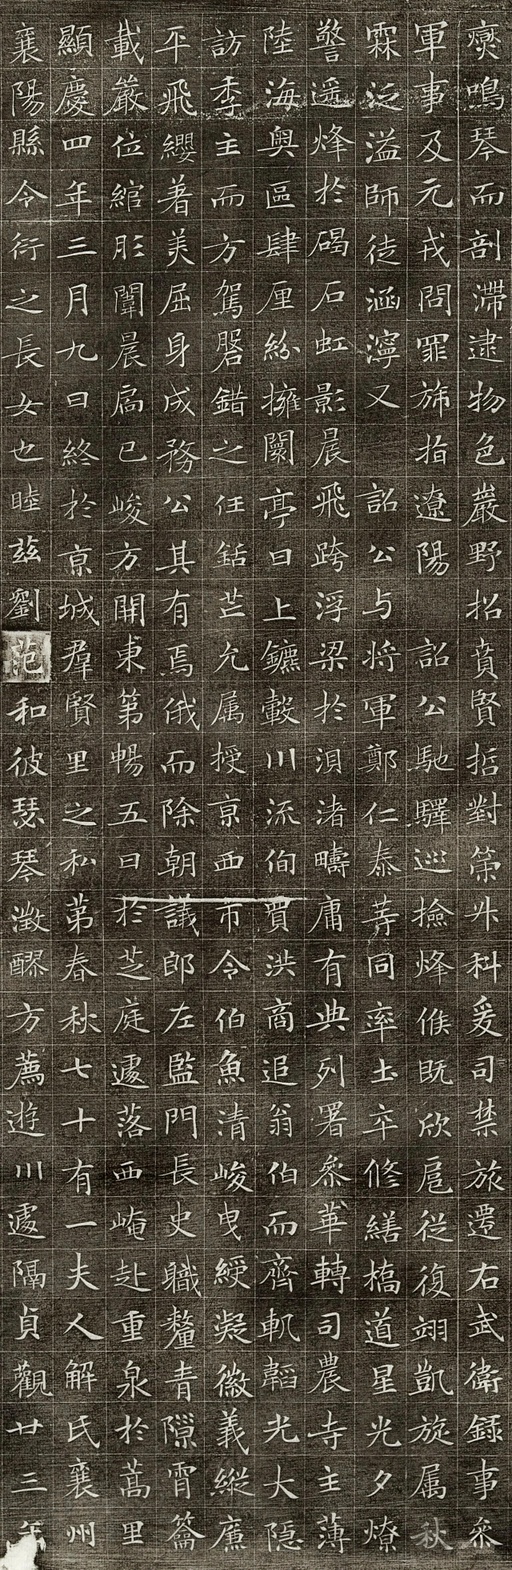 爕鳴琴而剖滯逮物色巖野招賁賢括對策升科爰司禁旅遷右武衛錄事叅
軍事及元戎問罪旆指遼陽詔公馳驛巡撿烽候既欣扈從復翊凱旋属秋
霖泛溢師徒涵濘又詔公与將軍鄭仁泰等同率士卒修繕橋道星光夕燎
警遥烽於碣石虹影晨飛跨浮梁於浿渚疇庸有典列署叅華轉司農寺主薄
陸海奥區肆厘紛擁闤亭日上鑣轂川流伺賈洪商追翁伯而齊軌韜光大隱
訪季主而方駕磐錯之任銛芒允属授京西市令伯魚清峻曳綬凝徽義縱廉
平飛纓著美屈身成務公其有焉俄而除朝議郎左監門長史職釐青隙霄籥
載嚴位綰彤闈晨扃已峻方開東第暢五日於芝莚遽落西崦赴重泉於蒿里
顯慶四年三月九日終於京城羣賢里之私第春秋七十有一夫人解氏襄州
襄陽縣令衍之長女也睦兹劉范和彼瑟琴澂醪方薦遊川遽隔貞觀廿三年